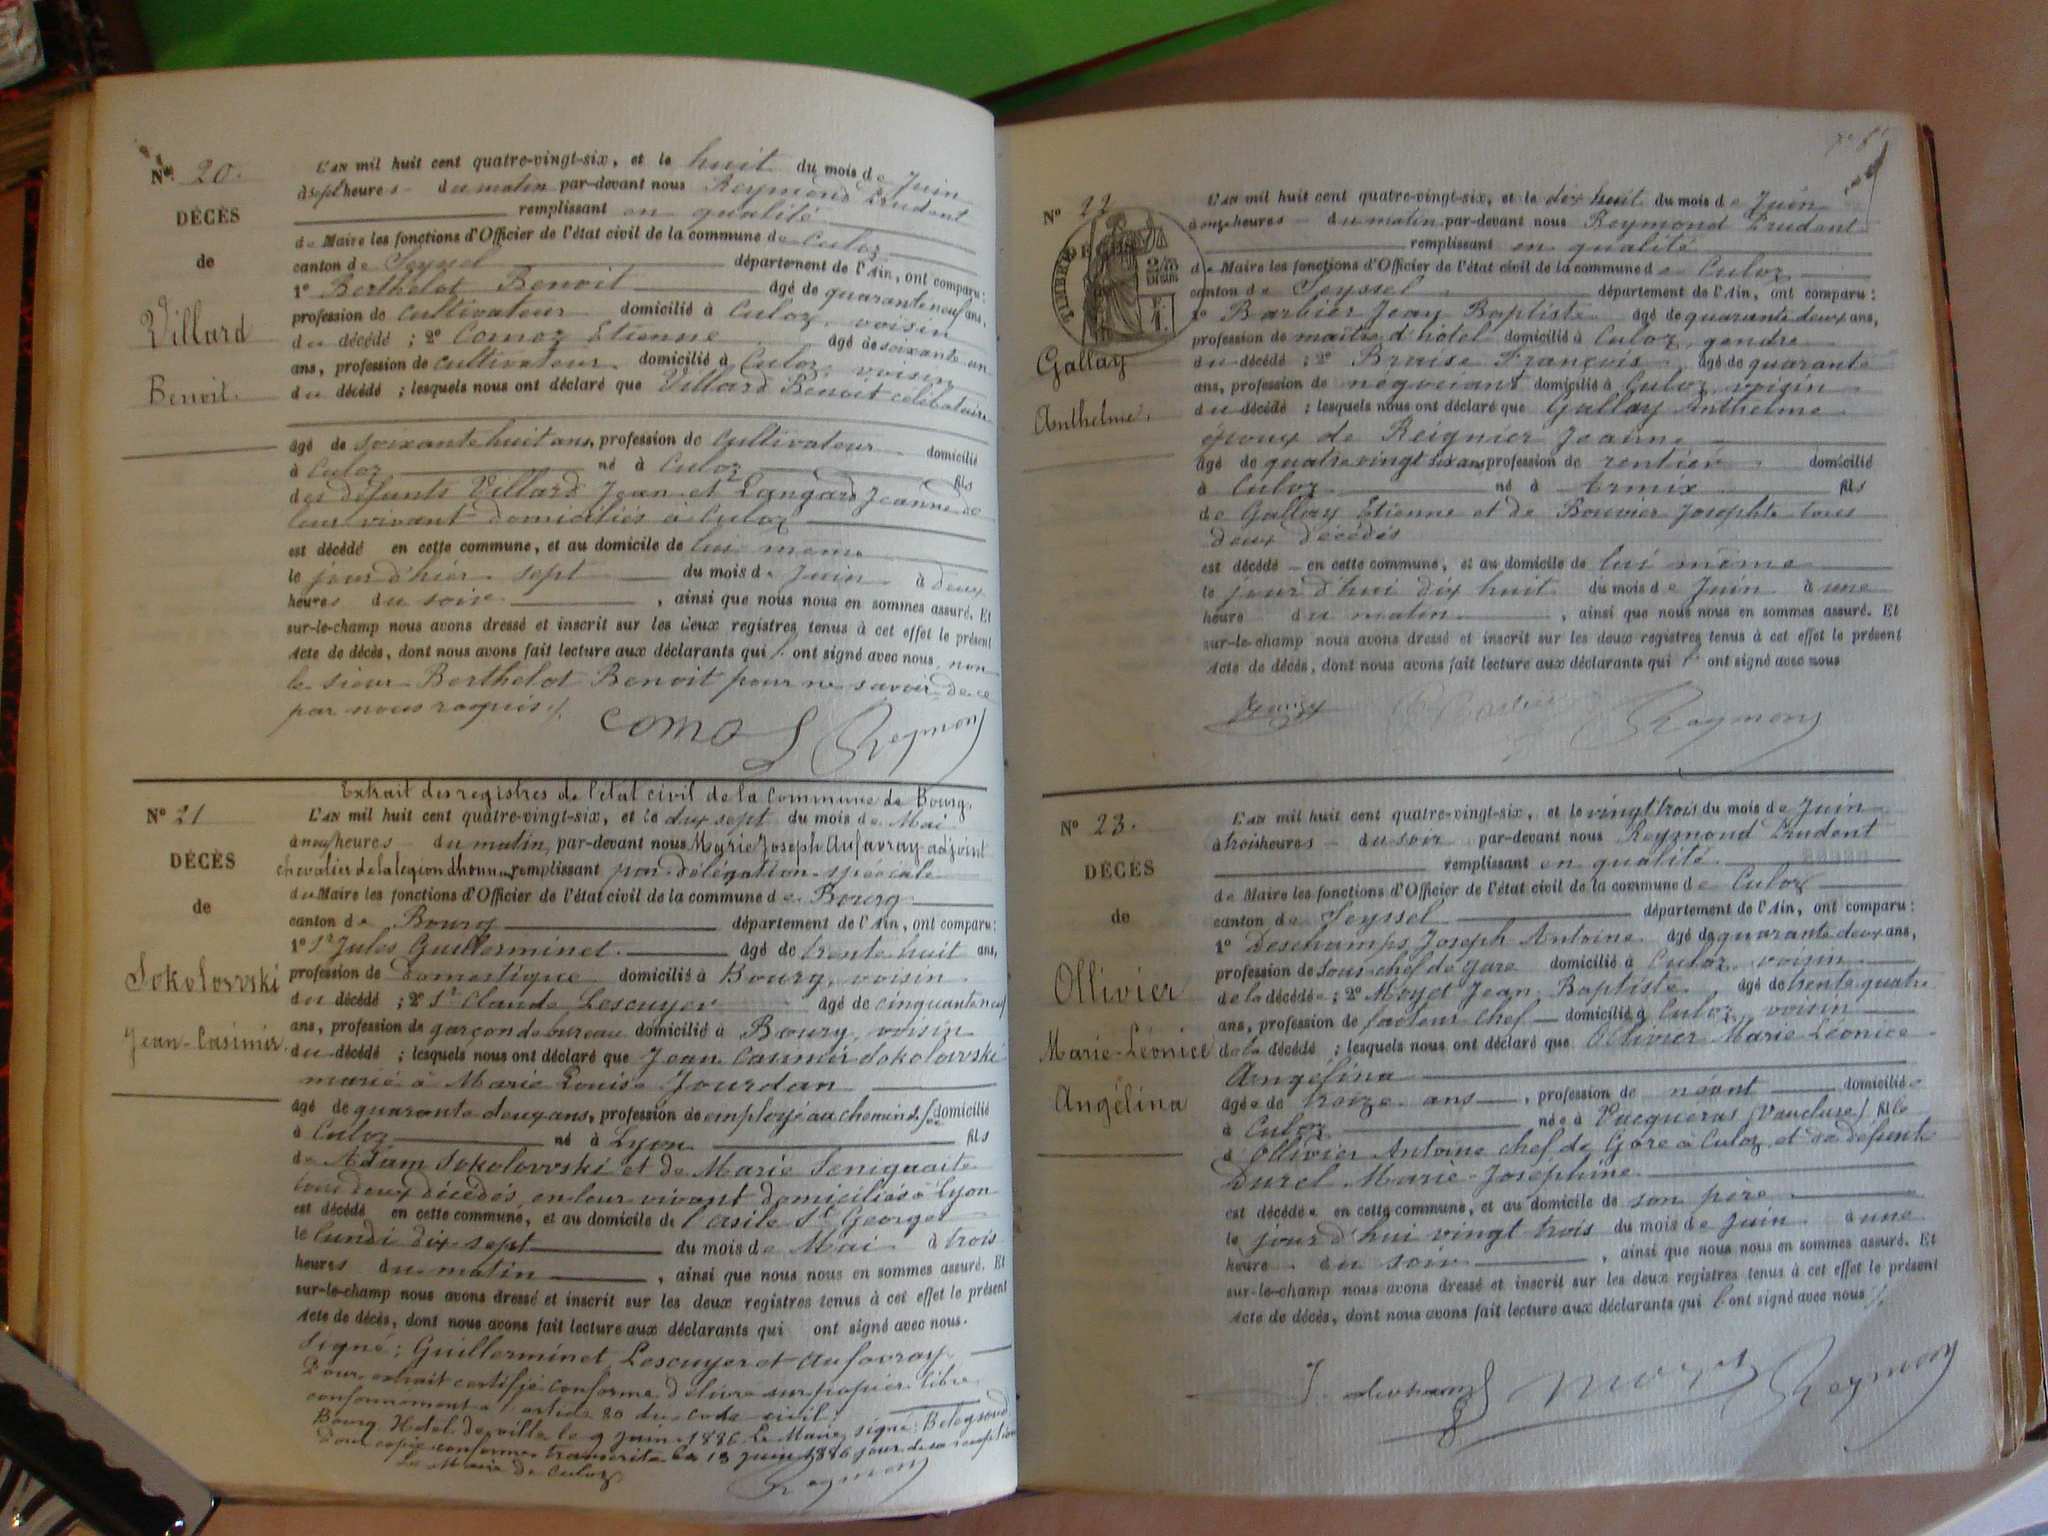 N° 20.
DÉCÈS
de
Villard
Benoit.
L'AN mil huit cent quatre-vingt-six, et le huit du mois de Juin
à sept heures du matin par-devant nous Reymond Prudent
remplissant en qualité
de Maire les fonctions d'Officier de l'état civil de la commune de Culoz
canton de Seyssel département de l'Ain, ont comparu:
1° Berthelot Benoit âgé de quarante neuf ans,
profession de cultivateur domicilié à Culoz, voisin
du décédé ; 2° Comoz Etienne âgé de soixante un
ans, profession de cultivateur domicilié à Culoz, voisin
du décédé ; lesquels nous ont déclaré que Villard Benoit célibataire
âgé de soixante huit ans, profession de cultivateur domicilié
à Culoz né à Culoz fils
des défunts Villard Jean et Langard Jeanne de
leur vivant domiciliés à Culoz
est décédé en cette commune, et au domicile de lui même
le jour d'hier sept du mois de Juin à deux
heures du soir, ainsi que nous nous en sommes assuré. Et
sur-le-champ nous avons dressé et inscrit sur les deux registres tenus à cet effet le présent
Acte de décès, dont nous avons fait lecture aux déclarants qui l'ont signé avec nous, non
le sieur Berthelot Benoit pour ne savoir de ce
par nous requis ./.
Comoz Reymond
N° 21
DÉCÈS
de
Sokolovvski
Jean-Casimir.
Extrait des registres de l'état civil de la commune de Bourg.
L'AN mil huit cent quatre-vingt-six, et le dix sept du mois de Mai
à neuf heures du matin, par-devant nous Marie Joseph Aufavray adjoint
chevalier de la légion d'honneur remplissant par délégation spéciale
du Maire les fonctions d'Officier de l'état civil de la commune de Bourg
canton de Bourg département de l'Ain, ont comparu:
1° Sr Jules Guillerminet âgé de trente huit ans,
profession de domestique domicilié à Bourg, voisin
du décédé ; 2° Sr Claude Lescuyer âgé de cinquante neuf
ans, profession de garçon de bureau domicilié à Bourg, voisin
du décédé ; lesquels nous ont déclaré que Jean Casimir Sokolovvski
marié à Marie Louise Jourdan
âgé de quarante deux ans, profession de employé au chemin de fer domicilié
à Culoz né à Lyon fils
de Adam Sokolovvski et de Marie
tous deux décédés, en leur vivant domiciliés à Lyon
est décédé en cette commune, et au domicile de l'asile St Georges
le lundi dix sept du mois de Mai à trois
heures du matin, ainsi que nous nous en sommes assuré. Et
sur-le-champ nous avons dressé et inscrit sur les deux registres tenus à cet effet le présent
Acte de décès, dont nous avons fait lecture aux déclarants qui ont signé avec nous.
Signé: Guillerminet Lescuyer et Aufavray
Pour extrait certifié conforme délivré sur papier libre
conformément à l'article 80 du code civil.
Bourg, Hotel de ville le 9 juin 1886 Le Maire, signé:
Pour copie conforme transcrite le 13 juin 1886 jour de sa réception
Le Maire de Culoz
Reymond
N° 22
TIMBRE
Gallay
Anthelme.
L'AN mil huit cent quatre-vingt-six, et le dix huit du mois de Juin
à onze heures du matin par-devant nous Reymond Prudent
remplissant en qualité
de Maire les fonctions d'Officier de l'état civil de la commune de Culoz
canton de Seyssel département de l'Ain, ont comparu:
1° Barbier Jean Baptiste âgé de quarante deux ans,
profession de maître d'hôtel domicilié à Culoz, gendre
du décédé ; 2° Braise François âgé de quarante
ans, profession de négociant domicilié à Culoz voisin
du décédé ; lesquels nous ont déclaré que Gallay Anthelme
époux de Reignier Jeanne
âgé de quatre vingt six ans profession de rentier domicilié
à Culoz né à Armix fils
de Gallay Etienne et de Bouvier Josephte tous
deux décédés
est décédé en cette commune, et au domicile de lui même
le jour d'hui dix huit du mois de Juin à une
heure du matin, ainsi que nous nous en sommes assuré. Et
sur-le-champ nous avons dressé et inscrit sur les deux registres tenus à cet effet le présent
Acte de décès, dont nous avons fait lecture aux déclarants qui l'ont signé avec nous
Reymond
N° 23.
DÉCÈS
de
Ollivier
Marie-Léonice
Angélina
L'AN mil huit cent quatre-vingt-six, et le vingt trois du mois de Juin
à trois heures du soir par-devant nous Reymond Prudent
remplissant en qualité
de Maire les fonctions d'Officier de l'état civil de la commune de Culoz
canton de Seyssel département de l'Ain, ont comparu:
1° Deschamps Joseph Antoine âgé de quarante deux ans,
profession de sous chef de gare domicilié à Culoz voisin
de la décédée ; 2° Moyet Jean Baptiste, âgé de trente quatre
ans, profession de facteur chef domicilié à Culoz, voisin
de la décédée ; lesquels nous ont déclaré que Ollivier Marie Léonice
Angélina
âgée de treize ans, profession de néant domiciliée
à Culoz née à Vacqueras (Vaucluse) fille
d'Ollivier Antoine chef de Gare à Culoz et de défunte
Durel Marie-Joséphine
est décédée en cette commune, et au domicile de son père
le jour d'hui vingt trois du mois de Juin à une
heure du soir, ainsi que nous nous en sommes assuré. Et
sur-le-champ nous avons dressé et inscrit sur les deux registres tenus à cet effet le présent
Acte de décès, dont nous avons fait lecture aux déclarants qui l'ont signé avec nous ./.
J. deschamps Moyet Reymond